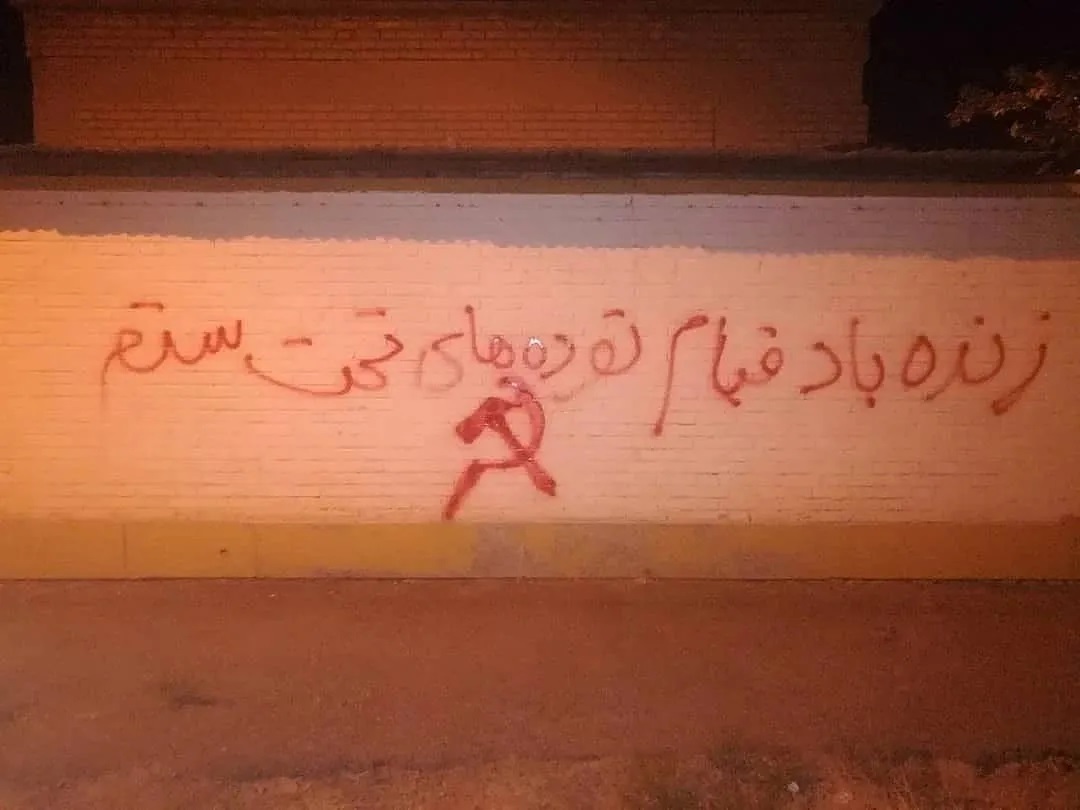 زنده باد قیام توده های تحت ستم